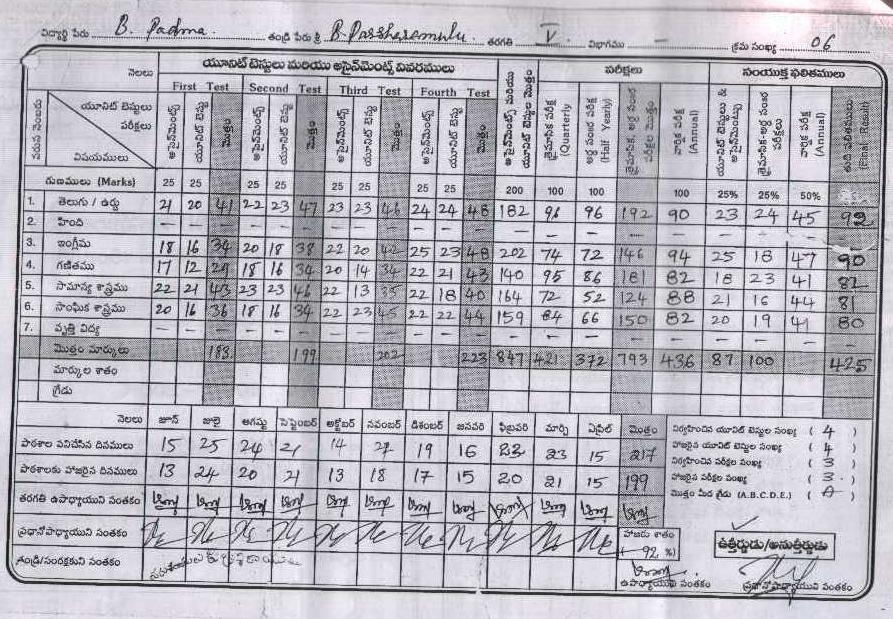 విద్యార్థి పేరు B. Padma. తండ్రి పేరు శ్రీ B. Parsharamulu. తరగతి V. విభాగము — క్రమ సంఖ్య 06
నెలలు యూనిట్ టెస్టులు మరియు అసైన్‌మెంట్స్ వివరములు పరీక్షలు సంయుక్త ఫలితములు
First Test Second Test Third Test Fourth Test
వరుస సంఖ్య యూనిట్ టెస్టులు పరీక్షలు విషయములు
అసైన్‌మెంట్స్ యూనిట్ టెస్ట్ మొత్తం అసైన్‌మెంట్స్ యూనిట్ టెస్ట్ మొత్తం అసైన్‌మెంట్స్ యూనిట్ టెస్ట్ మొత్తం అసైన్‌మెంట్స్ యూనిట్ టెస్ట్ మొత్తం
త్రైమాసిక పరీక్ష (Quarterly) అర్థ సంవత్సర పరీక్ష (Half Yearly) వార్షిక పరీక్ష (Annual) యూనిట్ టెస్టులు & అసైన్‌మెంట్స్ వార్షిక పరీక్ష (Annual) తుది ఫలితములు (Final Result)
గుణములు (Marks) 25 25 25 25 25 25 25 25 200 100 100 100 25% 25% 50%
1. తెలుగు / ఉర్దు 21 20 41 22 23 47 23 23 46 24 24 48 182 96 96 192 90 23 24 45 92
2. హింది — — — — — — — — — — — — — — — — — — — — —
3. ఇంగ్లీషు 18 16 34 20 18 38 22 20 42 25 23 48 202 74 72 146 94 25 18 47 90
4. గణితము 17 12 29 18 16 34 20 14 34 22 21 43 140 95 86 181 82 18 23 41 82
5. సామాన్య శాస్త్రము 22 21 43 23 23 46 22 13 35 22 18 40 164 72 52 124 88 21 16 44 81
6. సాంఘిక శాస్త్రము 20 16 36 18 16 34 22 23 45 22 22 44 159 84 66 150 82 20 19 41 80
7. వృత్తి విద్య — — — — — — — — — — — — — — — — — — — — —
మొత్తం మార్కులు 183 199 202 223 847 421 372 793 436 87 100 425
మార్కుల శాతం
గ్రేడు
నెలలు జూన్ జులై ఆగష్టు సెప్టెంబర్ అక్టోబర్ నవంబర్ డిశంబర్ జనవరి ఫిబ్రవరి మార్చి ఏప్రిల్ మొత్తం
పాఠశాల పనిచేసిన దినములు 15 25 24 21 14 22 19 16 23 23 15 217
పాఠశాలకు హాజరైన దినములు 13 24 20 21 13 18 17 15 20 21 15 199
నిర్వహించిన యూనిట్ టెస్టుల సంఖ్య ( 4 )
హాజరైన యూనిట్ టెస్టుల సంఖ్య ( 4 )
నిర్వహించిన పరీక్షల సంఖ్య ( 3 )
హాజరైన పరీక్షల సంఖ్య ( 3 )
మొత్తం మీద గ్రేడు (A.B.C.D.E.) ( A )
తరగతి ఉపాధ్యాయుని సంతకం
ప్రధానోపాధ్యాయుని సంతకం హాజరు శాతం ( 92 %)
ఉత్తీర్ణుడు/అనుత్తీర్ణుడు
తండ్రి/సంరక్షకుని సంతకం
ఉపాధ్యాయుని సంతకం ప్రధానోపాధ్యాయుని సంతకం